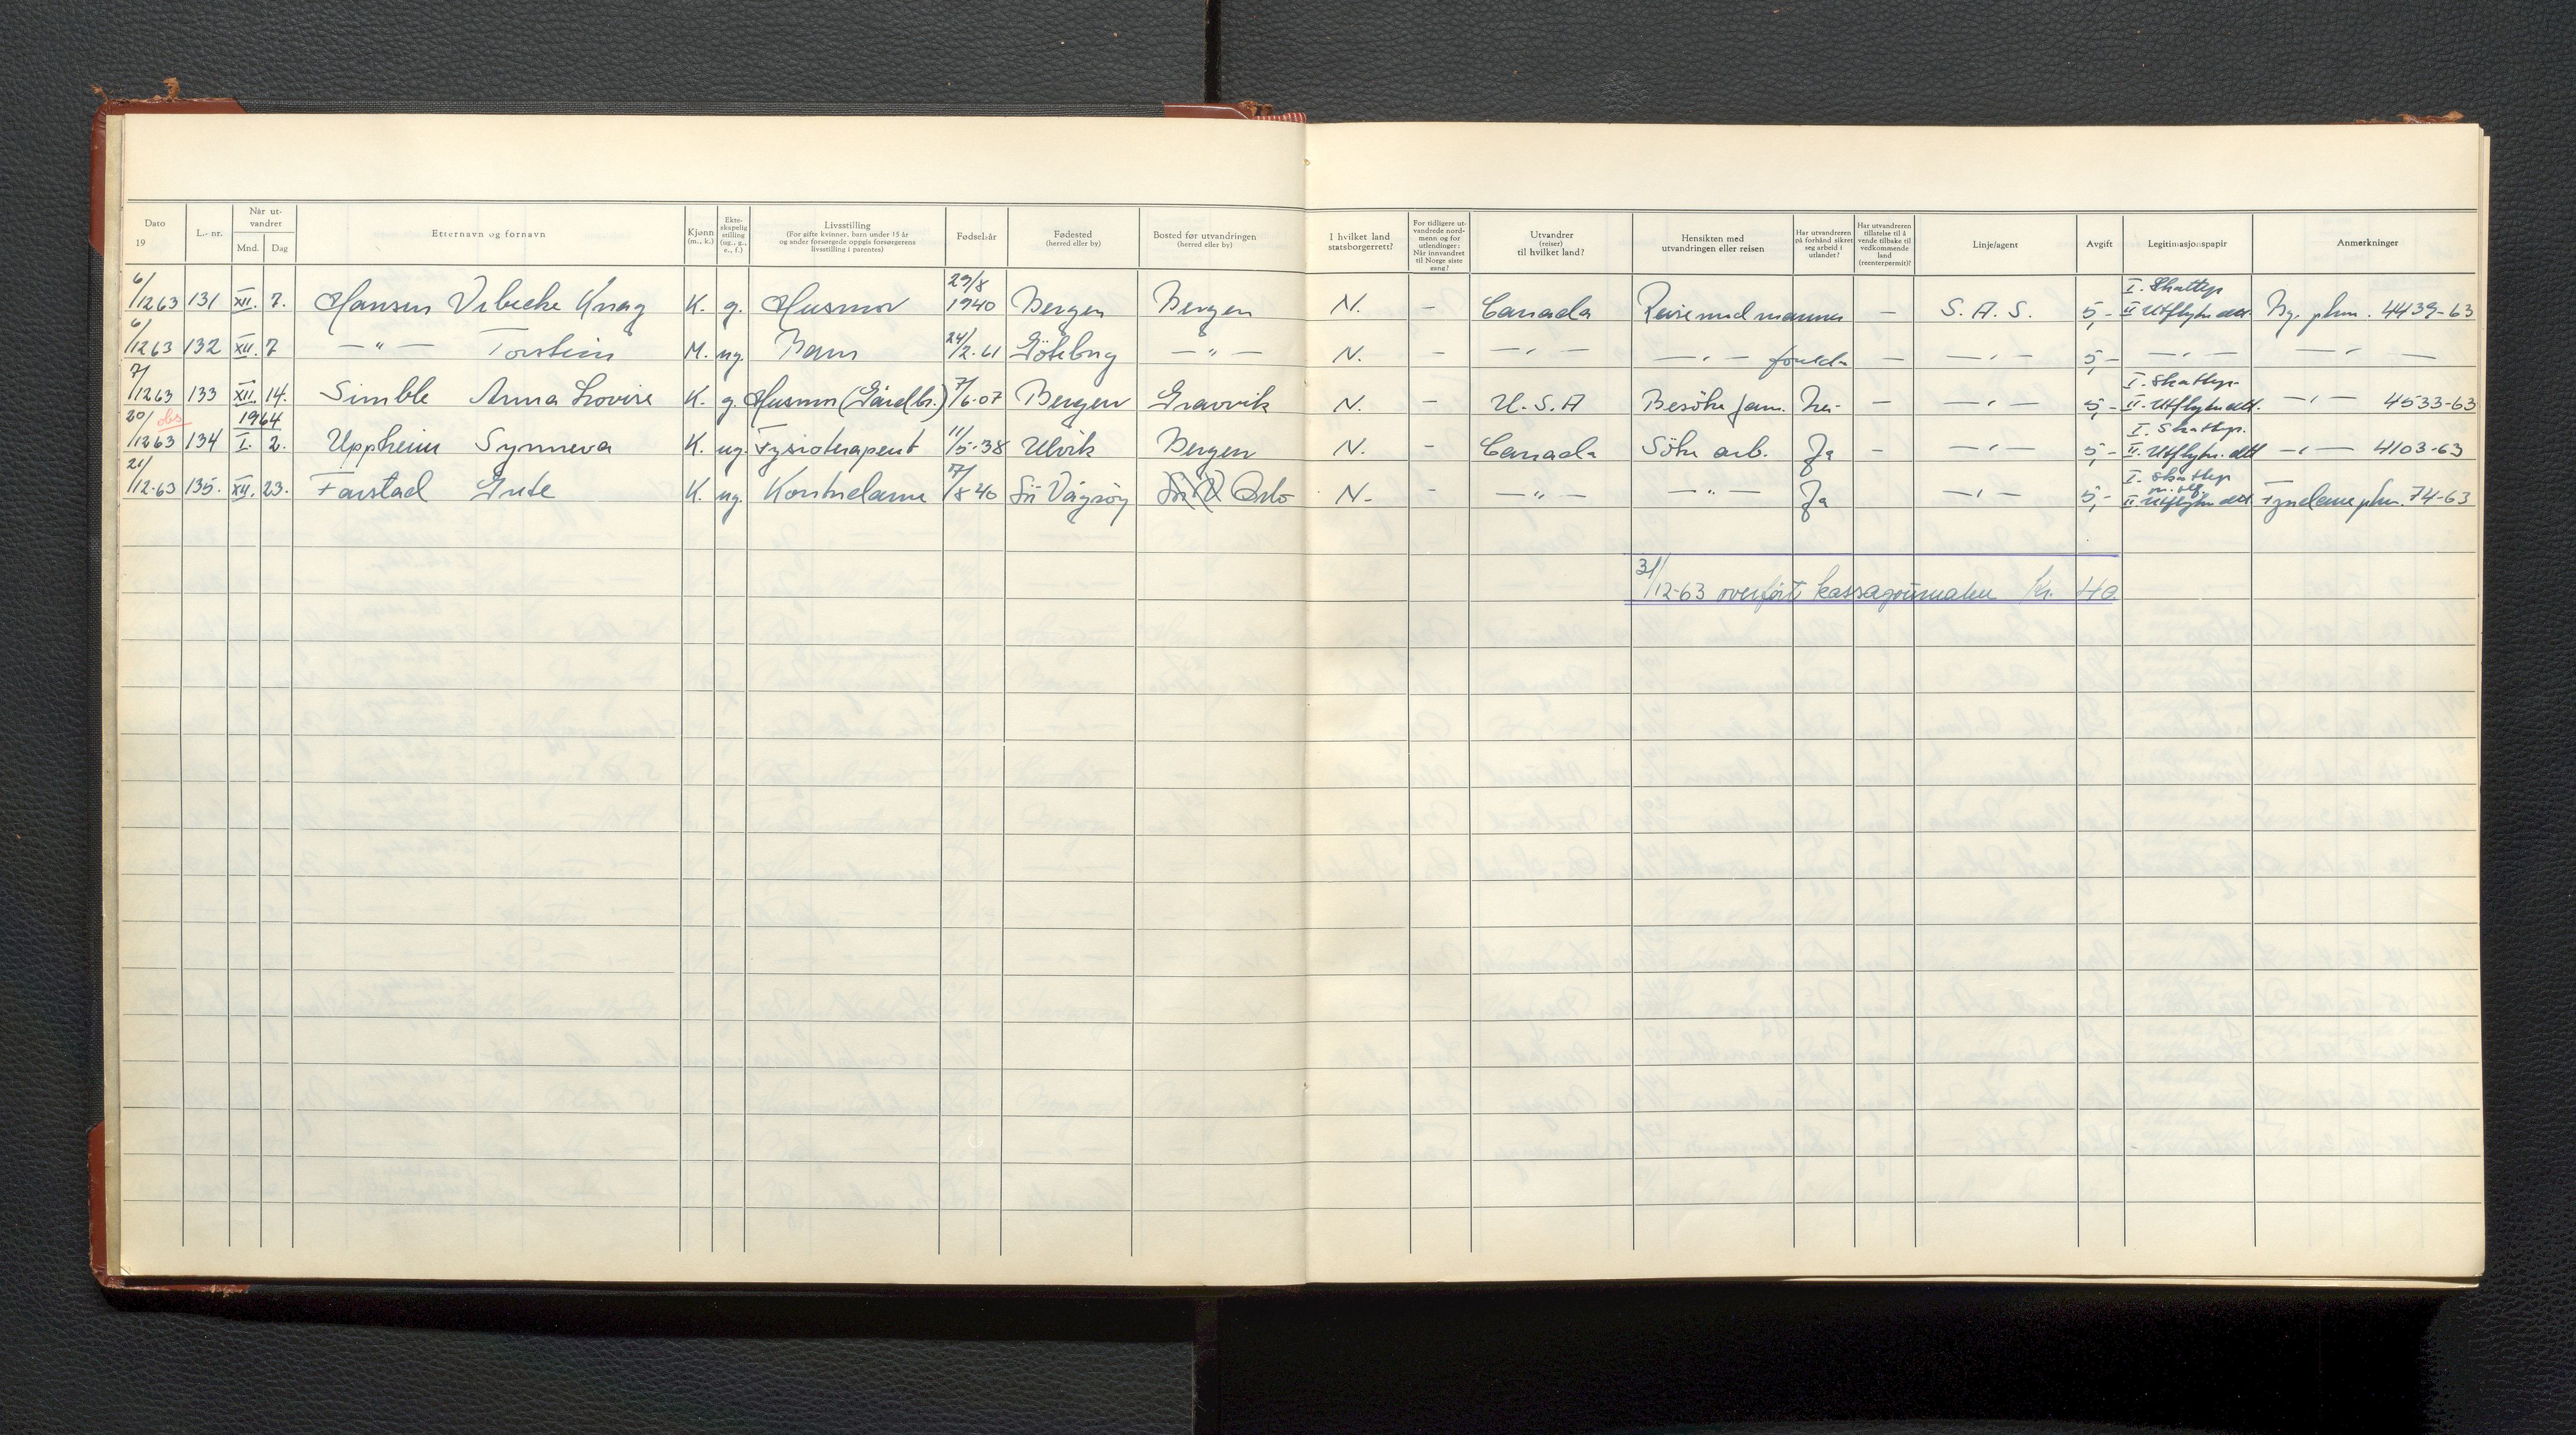 Dato 19 L.-nr. Når utvandret Mnd. Dag Etternavn og fornavn Kjønn (m., k.) Ekteskapelig stilling (ug., g., e., f.) Livsstilling (For gifte kvinner, barn under 15 år og andre forsørgede oppgis forsørgerens livsstilling i parentes) Fødselsår Fødested (herred eller by) Bosted før utvandringen (herred eller by) I hvilket land statsborgerrett? For tidligere utvandrede nordmenn og for utlendinger: Når innvandret til Norge siste gang? Utvandrer (reiser) til hvilket land? Hensikten med utvandringen eller reisen Har utvandreren på forhånd sikret seg arbeid i utlandet? Har utvandreren tillatelse til å vende tilbake til vedkommende land (reenterpermit)? Linje/agent Avgift Legitimasjonspapir Anmerkninger
6/12 63 131 XII. 7. Hansen Vibecke Knag K. g. Husmor 29/8 1940 Bergen Bergen N. – Canada Reise med mannen – S. A. S. 5,- I. Skattep. II Utflytn. att. By. pkm. 4439-63
6/12 63 132 XII. 7 — " — Torstein M. ug. Barn 24/2-61 Göteborg — " — N. – — " — — " — foreldr. – — " — 5,- — " — — " —
7/12 63 133 XII. 14. Simble Anna Lovise K. g. Husmor (Gårdbr.) 7/6-07 Bergen Gravvik N. – U.S.A Besöke fam. Nei – — " — 5,- I. Skattep. II. Utflytn. att. — " — 4533-63
20/12 63 obs 134 1964 I. 2. Uppheim Synneva K. ug. Fysioterapeut 11/5-38 Ulvik Bergen N. – Canada Söke arb. Ja – — " — 5,- I. Skattep. II. Utflytn. att — " — 4103-63
21/12-63 135. XII. 23. Farstad Grete K. ug. Kontordame 7/8 40 Sör Vågsöy Oslo N. – — " — — " — Ja — " — 5,- I. Skattep II Utflytn att Fyndene pkm. 74-63
31/12-63 overfört kassajournalen Kr. 40